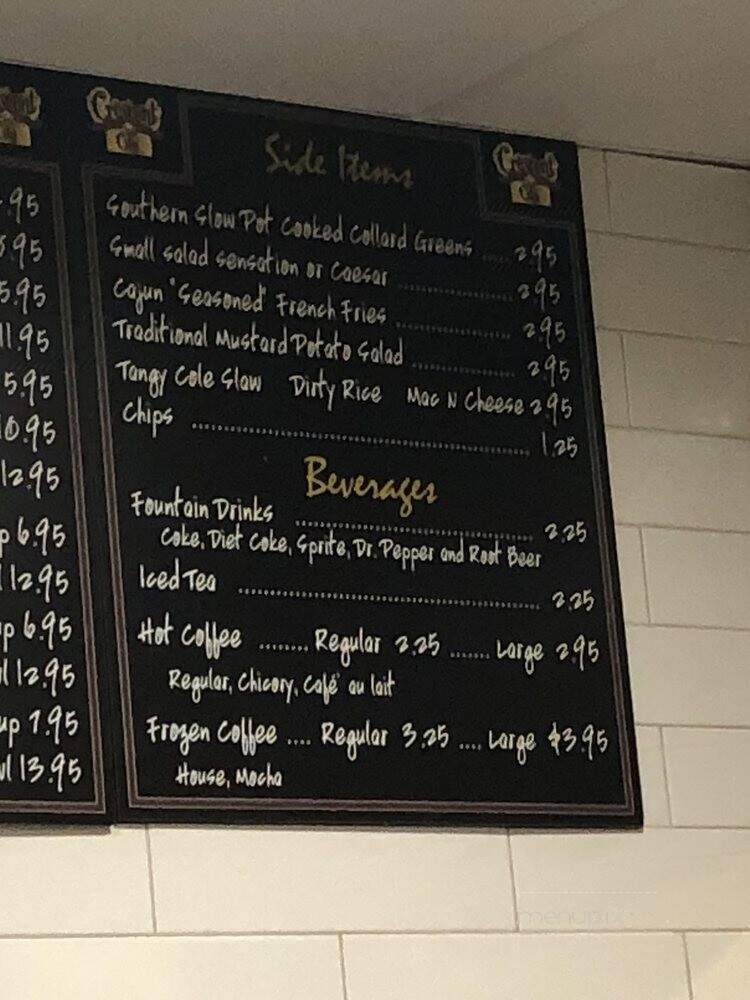 .95
5.95
5.95
11.95
5.95
10.95
12.95
p 6.95
12.95
up 6.95
wl 12.95
up 7.95
wl 13.95
Side Items
Southern Slow Pot Cooked Collard Greens .... 2.95
Small salad sensation or Caesar .................... 2.95
Cajun "Seasoned" French Fries .................... 2.95
Traditional Mustard Potato Salad .................. 2.95
Tangy Cole Slaw Dirty Rice Mac N Cheese 2.95
Chips ............................................................ 1.25
Beverages
Fountain Drinks .......................................... 2.25
Coke, Diet Coke, Sprite, Dr. Pepper and Root Beer
Iced Tea ...................................................... 2.25
Hot Coffee ........ Regular 2.25 ...... Large 2.95
Regular, Chicory, Café au lait
Frozen Coffee .... Regular 3.25 .... Large $3.95
House, Mocha